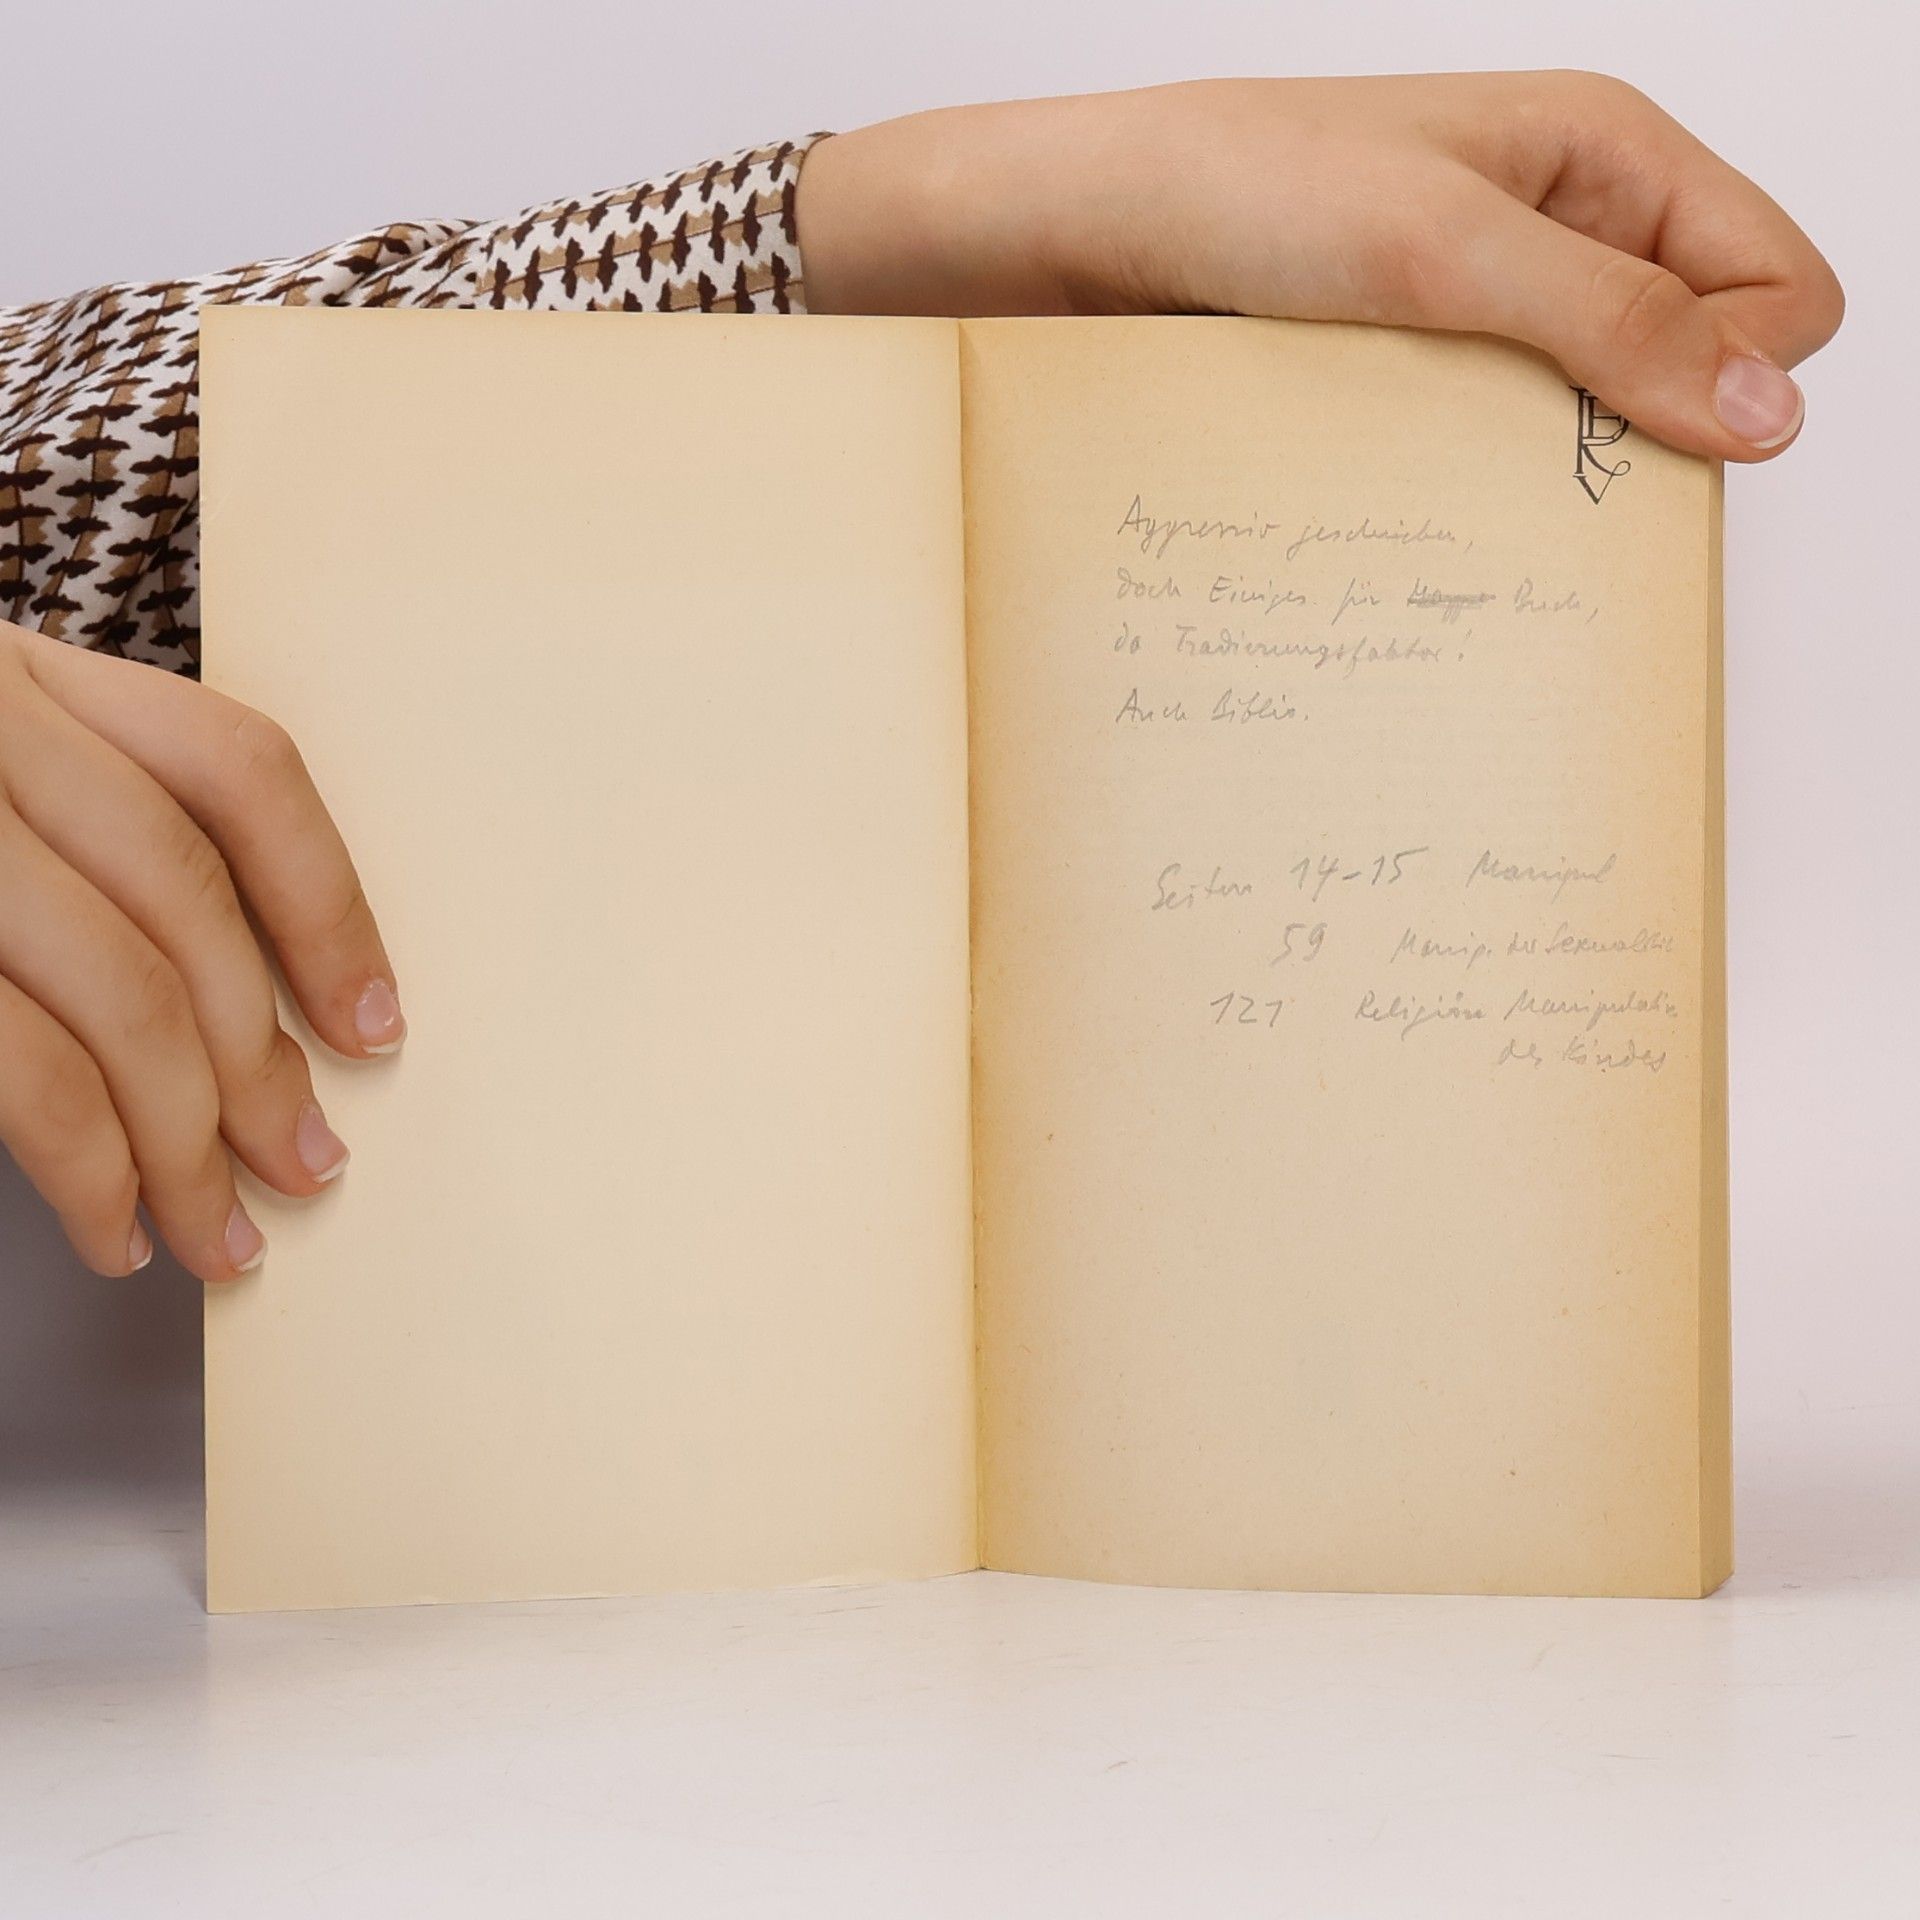 Aggressiv geschrieben,
doch Einiges für Buch,
da Tradierungsfaktor!
Auch Biblio.
Seiten 14-15 Manipul
59 Manip. der Sexualität
121 Religiöse Manipulation
des Kindes